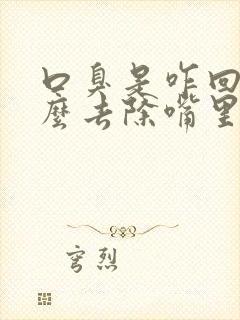 口臭是咋回
麼去除嘴里
穹烈